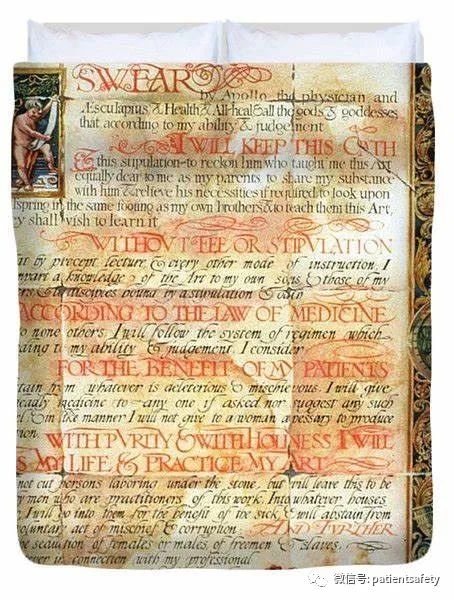 SWEAR
by Apollo the physician and
Æsculapius & Health & All-heal & all the gods & goddesses
that according to my ability & judgement
I WILL KEEP THIS OATH
& this stipulation-to reckon him who taught me this Art
equally dear to me as my parents to share my substance
with him & relieve his necessities if required to look upon
fspring in the same footing as my own brothers & to teach them this Art,
y shall wish to learn it
WITHOUT FEE OR STIPULATION
at by precept lecture & every other mode of instruction I
mpart a knowledge of the Art to my own sons & those of my
ers & to disciples bound by a stipulation & oath
ACCORDING TO THE LAW OF MEDICINE
to none others. I will follow the system of regimen which
ding to my ability & judgement I consider
FOR THE BENEFIT OF MY PATIENTS
tain from whatever is deleterious & mischievous. I will give
eadly medicine to any one if asked nor suggest any such
el & in like manner I will not give to a woman a pessary to produce
sion
WITH PURITY & WITH HOLINESS I WILL
S MY LIFE & PRACTICE MY ART
not cut persons laboring under the stone, but will leave this to be
y men who are practitioners of this work. Into whatever houses
I will go into them for the benefit of the sick & will abstain from
voluntary act of mischief & corruption AND FURTHER
he seduction of females or males of freemen & slaves.
ever in connection with my professional
微信号: patientsafety